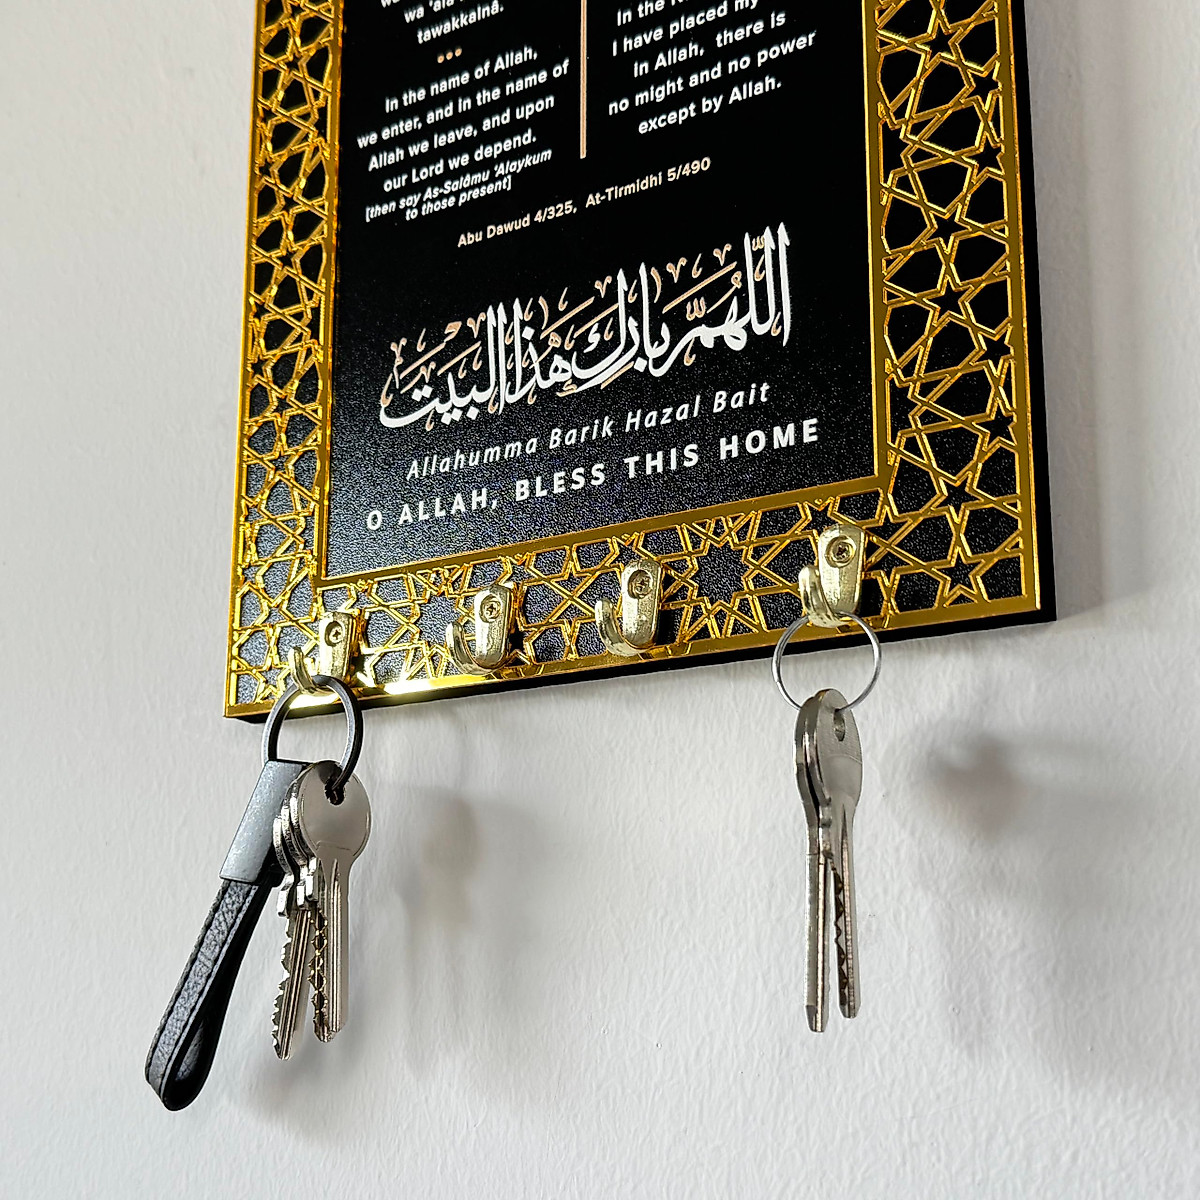 wa 'ala
tawakkalnâ.
In the name of Allah,
we enter, and in the name of
Allah we leave, and upon
our Lord we depend.
[then say As-Salâmu 'Alaykum
to those present]
In the
I have placed my
in Allah, there is
no might and no power
except by Allah.
Abu Dawud 4/325, At-Tirmidhi 5/490
اللهم بارك هذا البيت
Allahumma Barik Hazal Bait
O ALLAH, BLESS THIS HOME